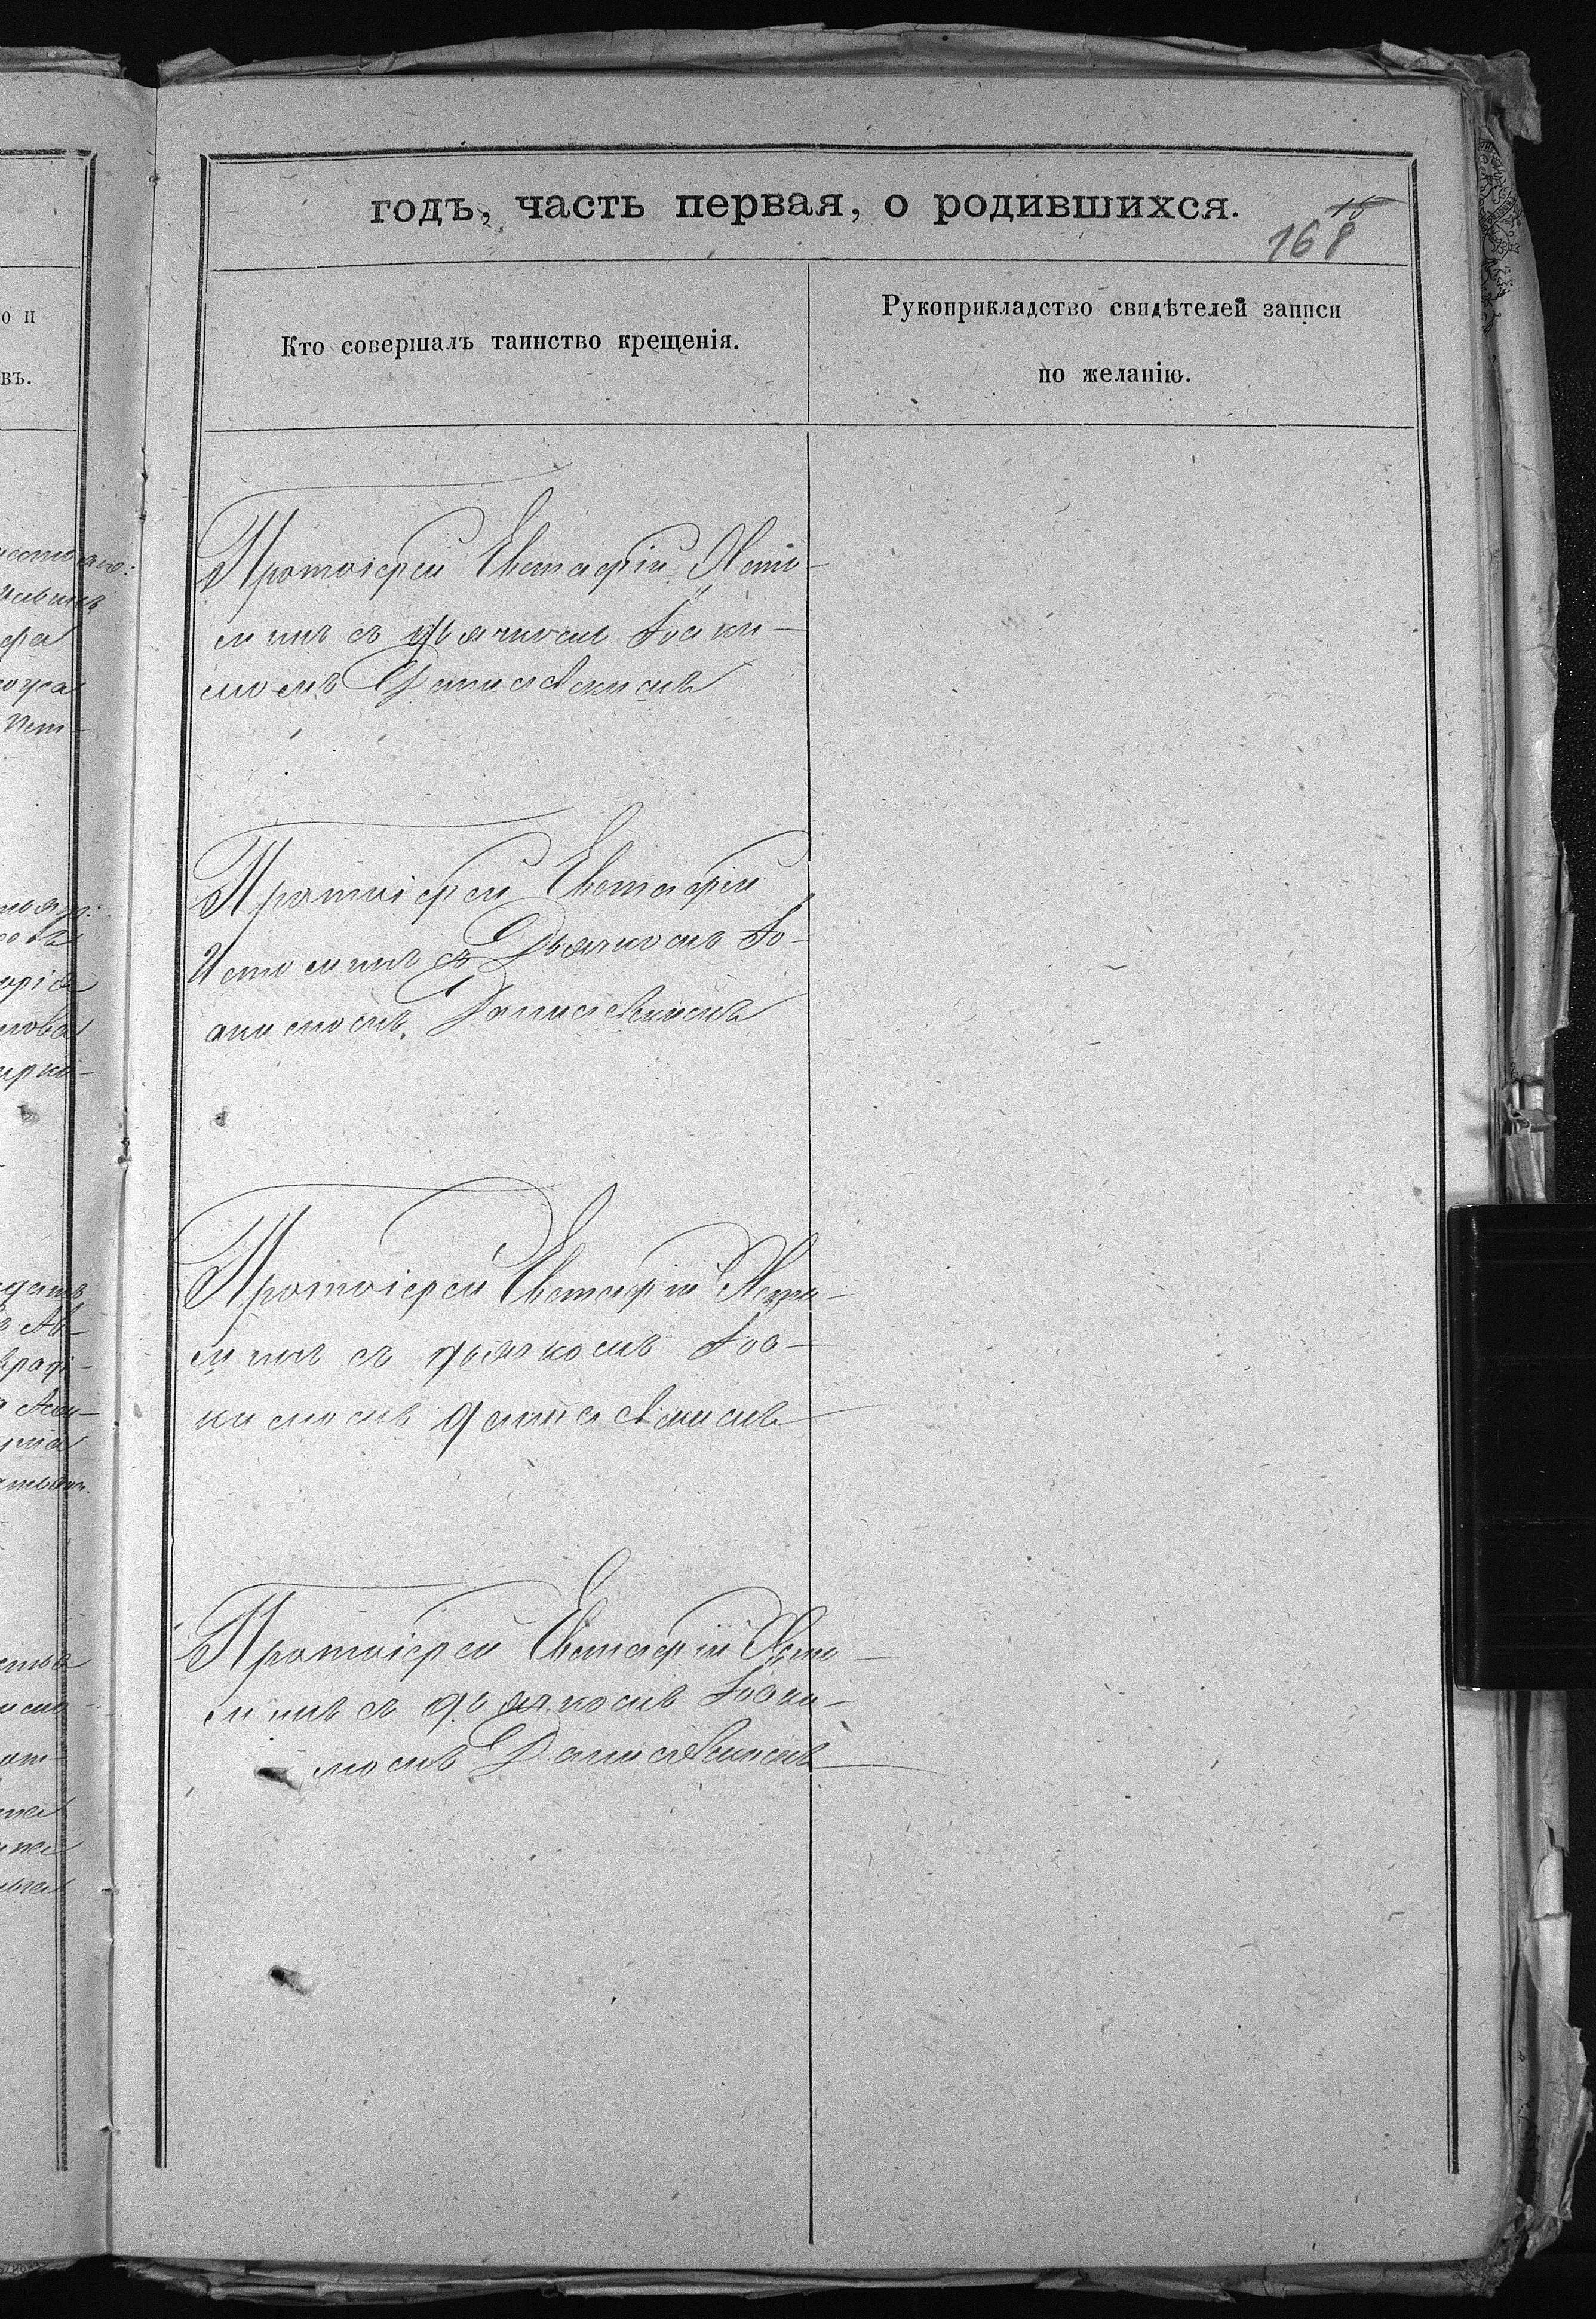 годъ, часть первая, о родившихся.
168
Кто совершалъ таинство крещенія.
Рукоприкладство свидѣтелей записи
по желанію.
о и
въ.
Протоіерей Евстафій Исто-
минъ съ дьячкомъ Іоаки-
момъ Данилевскимъ
Протоіерей Евстафій
Истоминъ съ Дьячкомъ Іо-
акимомъ Данилевскимъ
Протоіерей Евстафій Исто-
минъ съ дьячкомъ Іоа-
кимомъ Данилевскимъ
Протоіерей Евстафій Исто-
минъ съ дьячкомъ Іоаки-
момъ Данилевскимъ